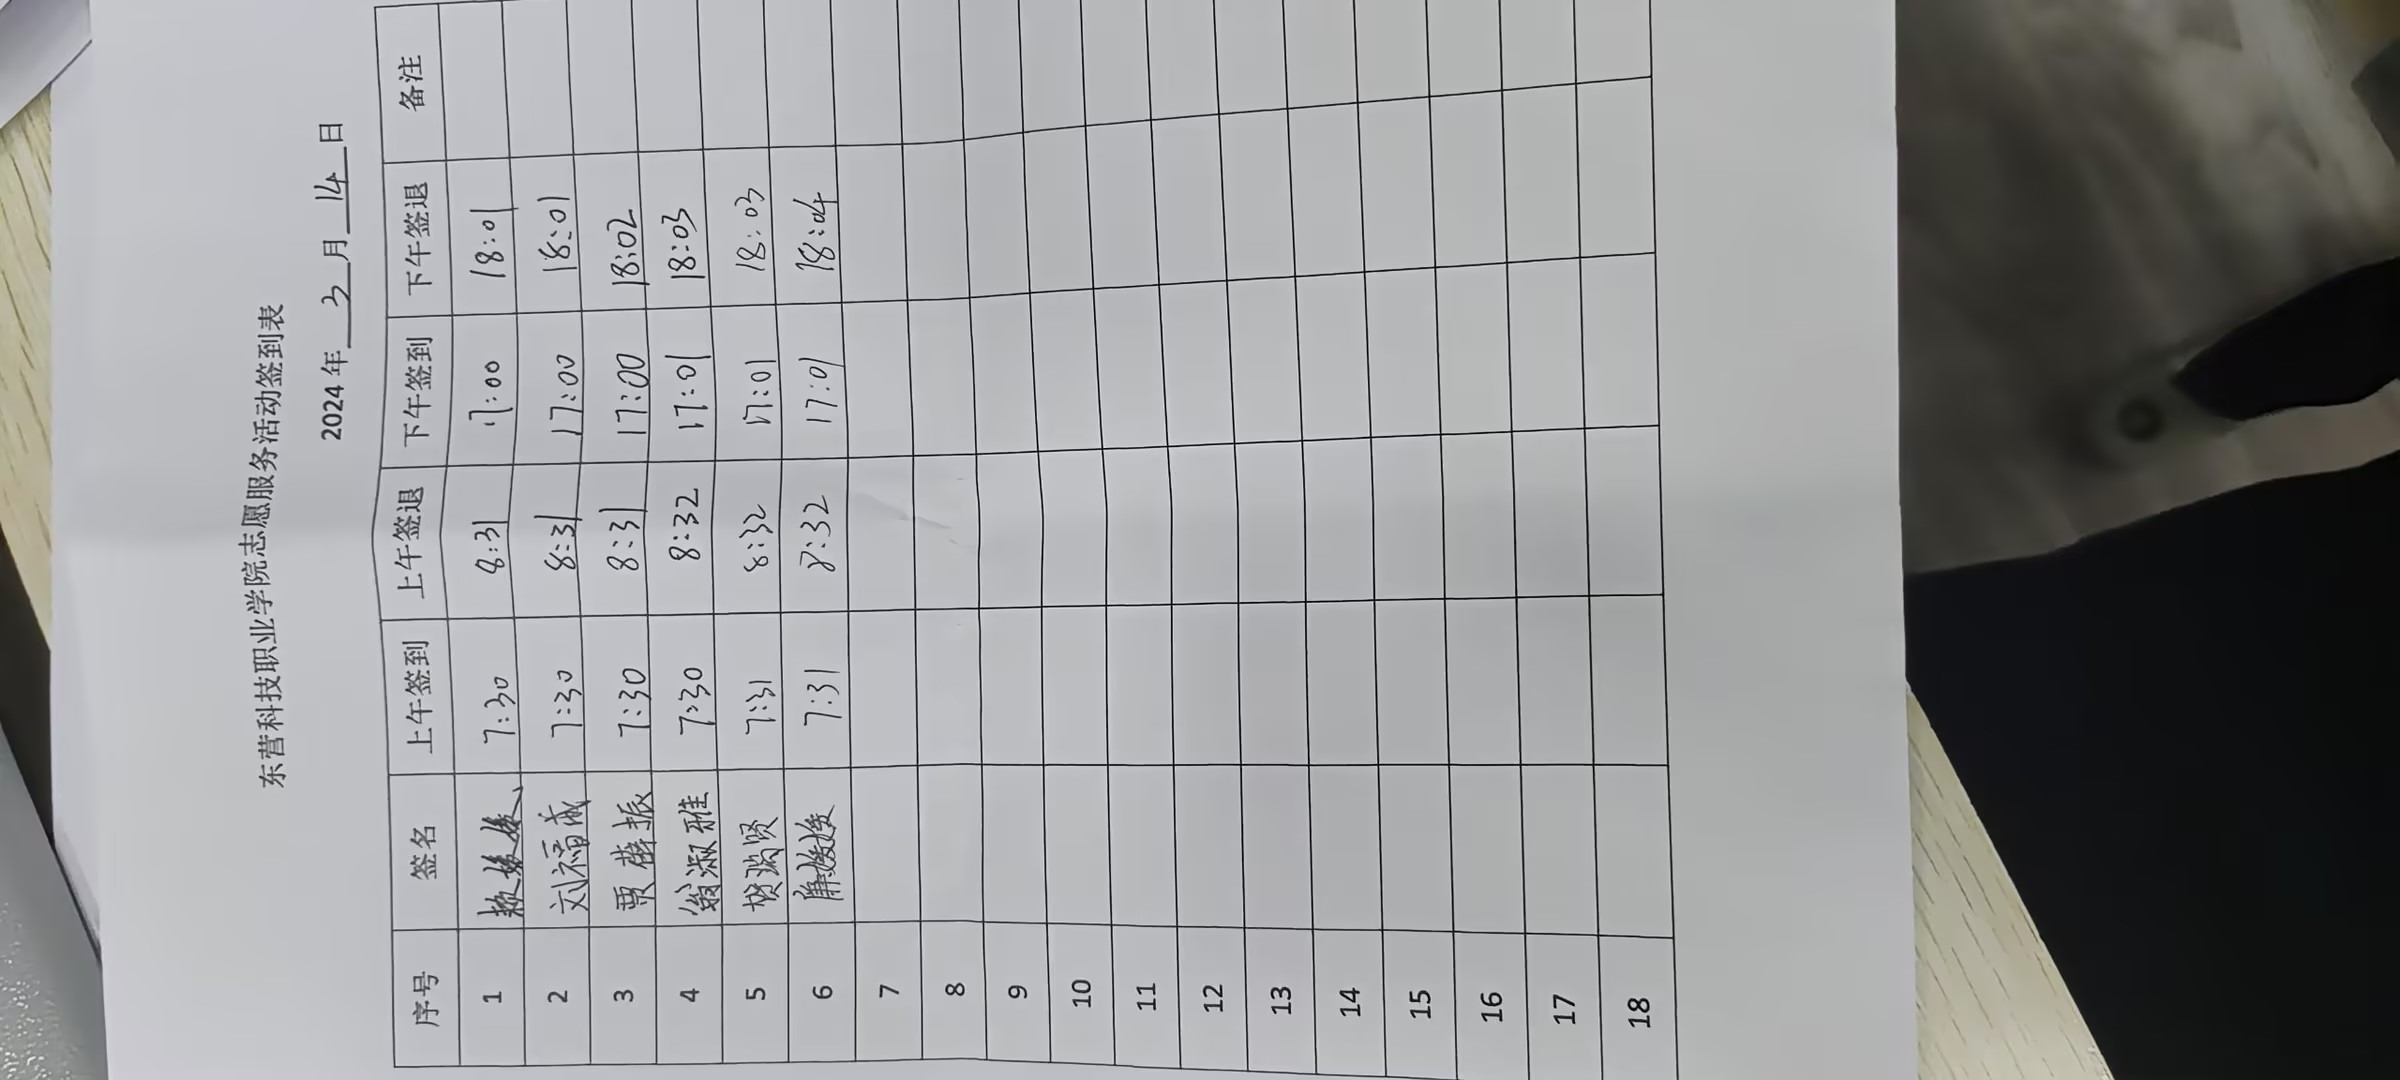 东营科技职业学院志愿服务活动签到表
2024 年 3 月 14 日
序号 签名 上午签到 上午签退 下午签到 下午签退 备注
1 7:30 8:31 17:00 18:01
2 刘福成 7:30 8:31 17:00 18:01
3 贾薛振 7:30 8:31 17:00 18:02
4 翁淑雅 7:30 8:32 17:01 18:03
5 贺瑞贤 7:31 8:32 17:01 18:03
6 7:31 8:32 17:01 18:04
7
8
9
10
11
12
13
14
15
16
17
18